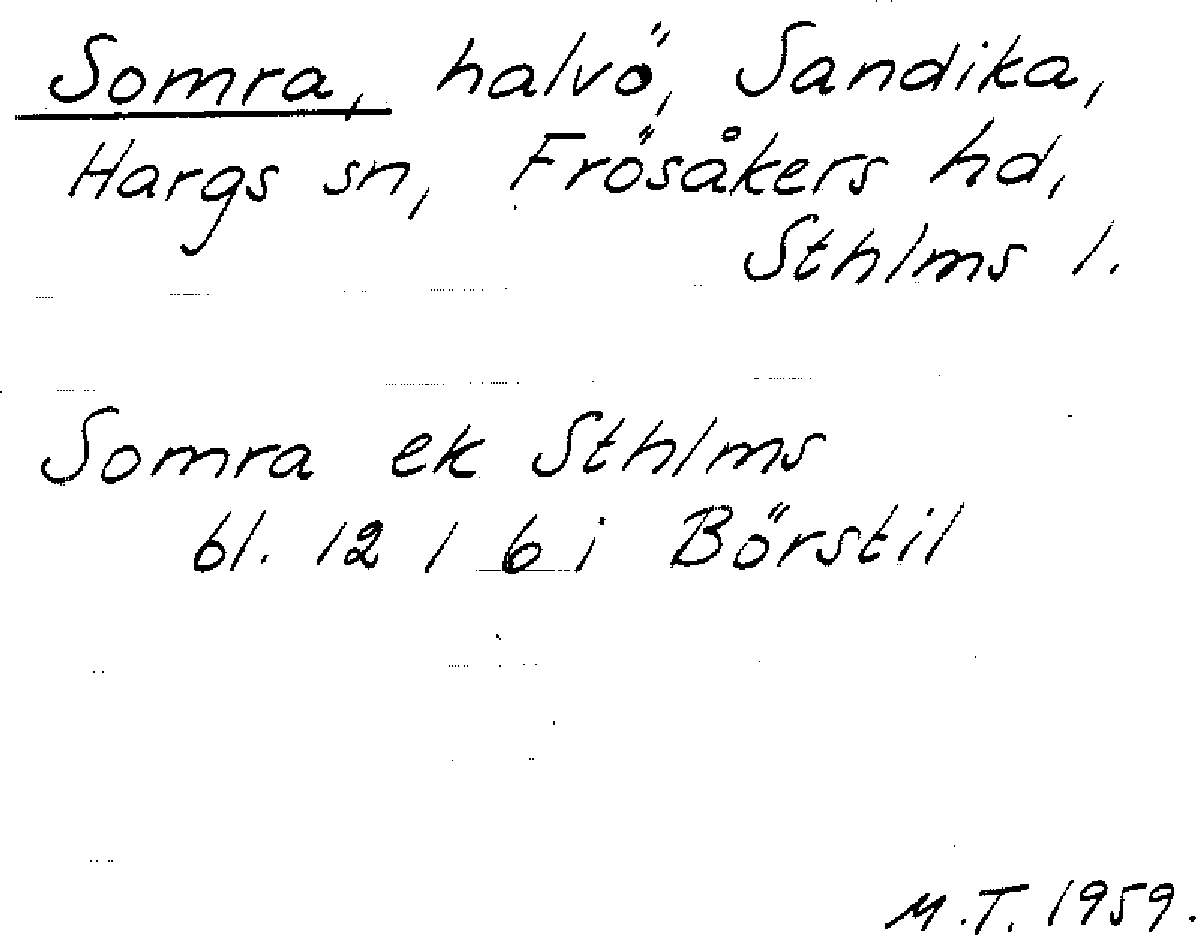 Somra, halvö, Sandika,
Hargs sn, Frösåkers hd,
Sthlms l.
Somra ek Sthlms
bl. 12 I 6 i Börstil
M.T. 1959.